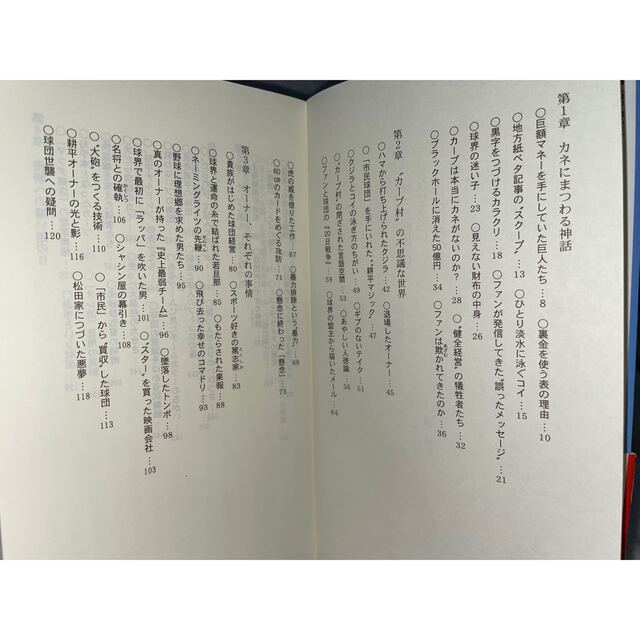 第1章 カネにまつわる神話
○巨額マネーを手にしていた巨人たち…8 ○裏金を使う表の理由…10
○地方紙ベタ記事の〝スクープ〟…13 ○ひとり淡水に泳ぐコイ…15
○黒字をつづけるカラクリ…18 ○ファンが発信してきた〝誤ったメッセージ〟…21
○球界の迷い子…23 ○見えない財布の中身…26
○カープは本当にカネがないのか?…28 ○〝健全経営〟の犠牲者たち…32
○ブラックホールに消えた50億円…34 ○ファンは欺かれてきたのか…36
第2章 〝カープ村〟の不思議な世界
○ハマから打ち上げられたクジラ…42 ○退場したオーナー…45
○「市民球団」を手にいれた〝耕平マジック〟…47
○クジラとコイの泳ぎ方のちがい…49 ○ギブのないテイク…51
○〝カープ村〟の閉ざされた言語空間…53 ○あやしい人徳論…56
○ファンと球団の『20日戦争』…59 ○球界の盟主から届いたメール…64
○虎の威を借りた工作…67 ○暴力排除という暴力…69
○60㎝のカードをめぐる攻防…71 ○懸念に終わった「懸念」…73
第3章 オーナー、それぞれの事情
○貴族がはじめた球団経営…80 ○スポーツ好きの篤志家…83
○球界と運命の糸で結ばれた若旦那…85 ○もたらされた果報…88
○ネーミングライツの先鞭…90 ○飛び去った幸せのコマドリ…93
○野球に理想郷を求めた男たち…95
○真のオーナーが持った『史上最弱チーム』…96 ○墜落したトンボ…98
○球界で最初に「ラッパ」を吹いた男…101 ○〝スター〟を買った映画会社…103
○名将との確執…104 ○シャシン屋の幕引き…108
○〝大砲〟をつくる技術…110 ○「市民」から〝買収〟した球団…113
○耕平オーナーの光と影…116 ○松田家につづいた悪夢…118
○球団世襲への疑問…120